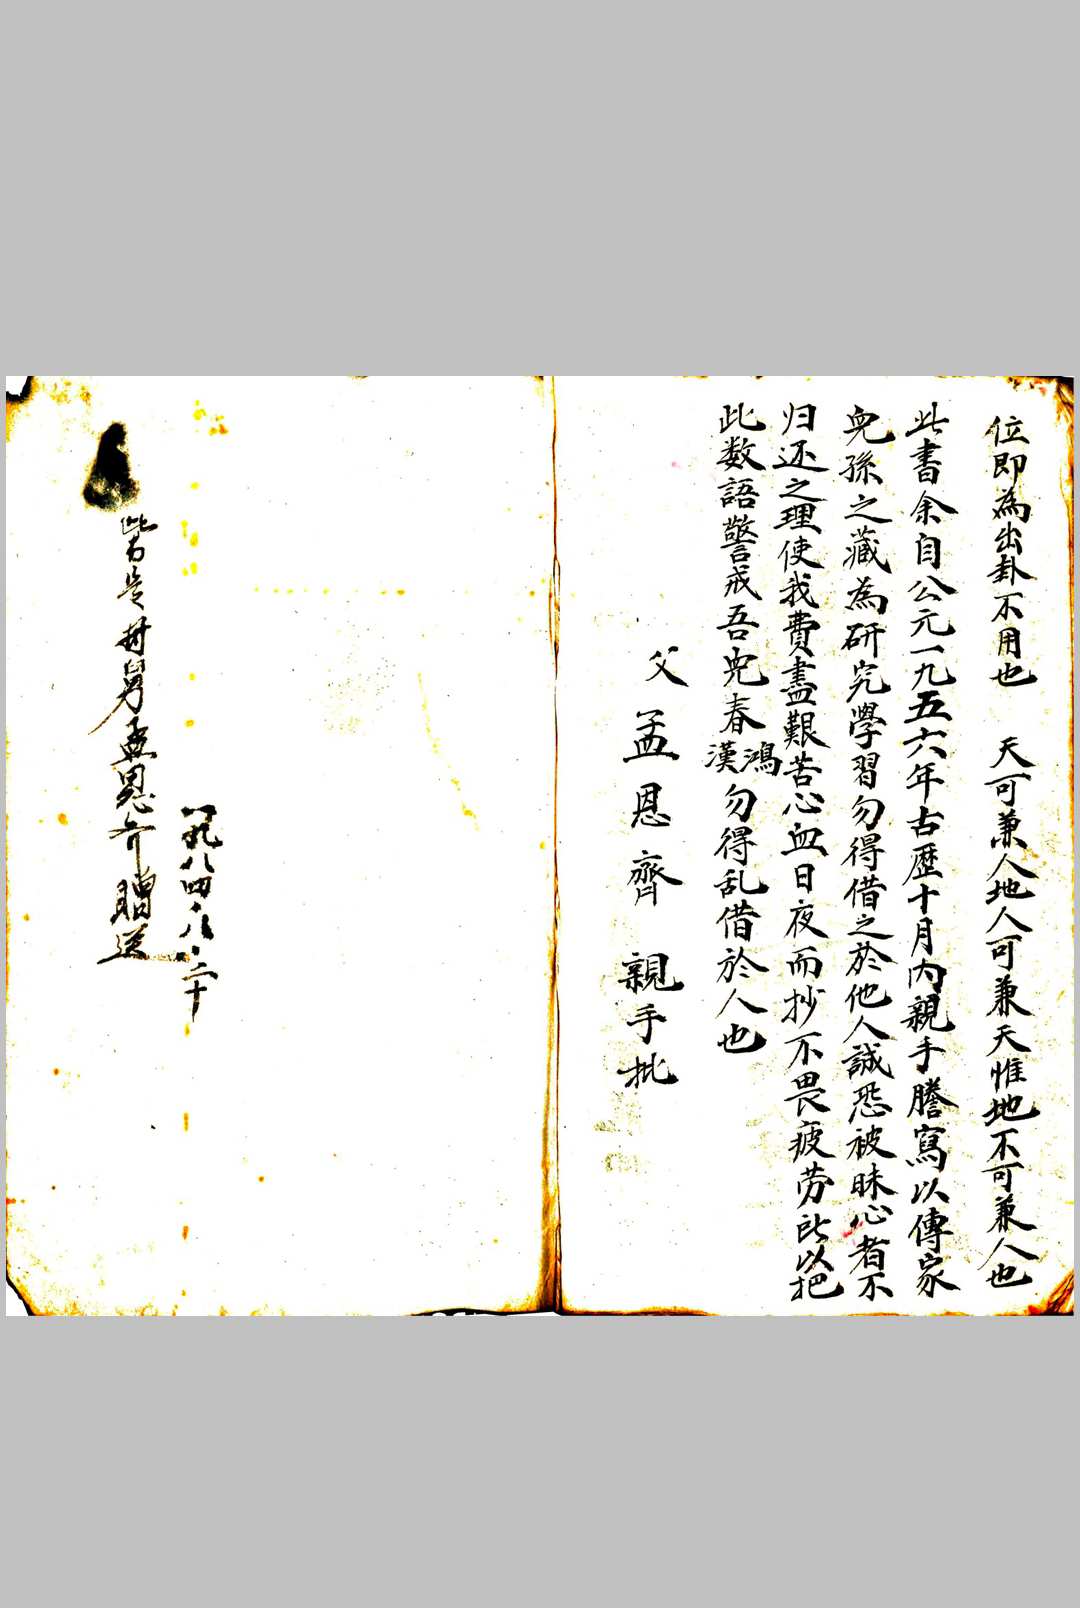 位即為出卦不用也　天可兼人地人可兼天惟地不可兼人也
此書余自公元一九五六年古歷十月內親手謄寫以傳家
兒孫之藏為研究學習勿得借之於他人誠恐被昧心者不
归还之理使我費盡艱苦心血日夜而抄不畏疲劳所以把
此数語警戒吾兒春鴻漢勿得乱借於人也
父孟恩齊　親手批
一九八四.八.二十
此書是村舅孟恩齐贈送